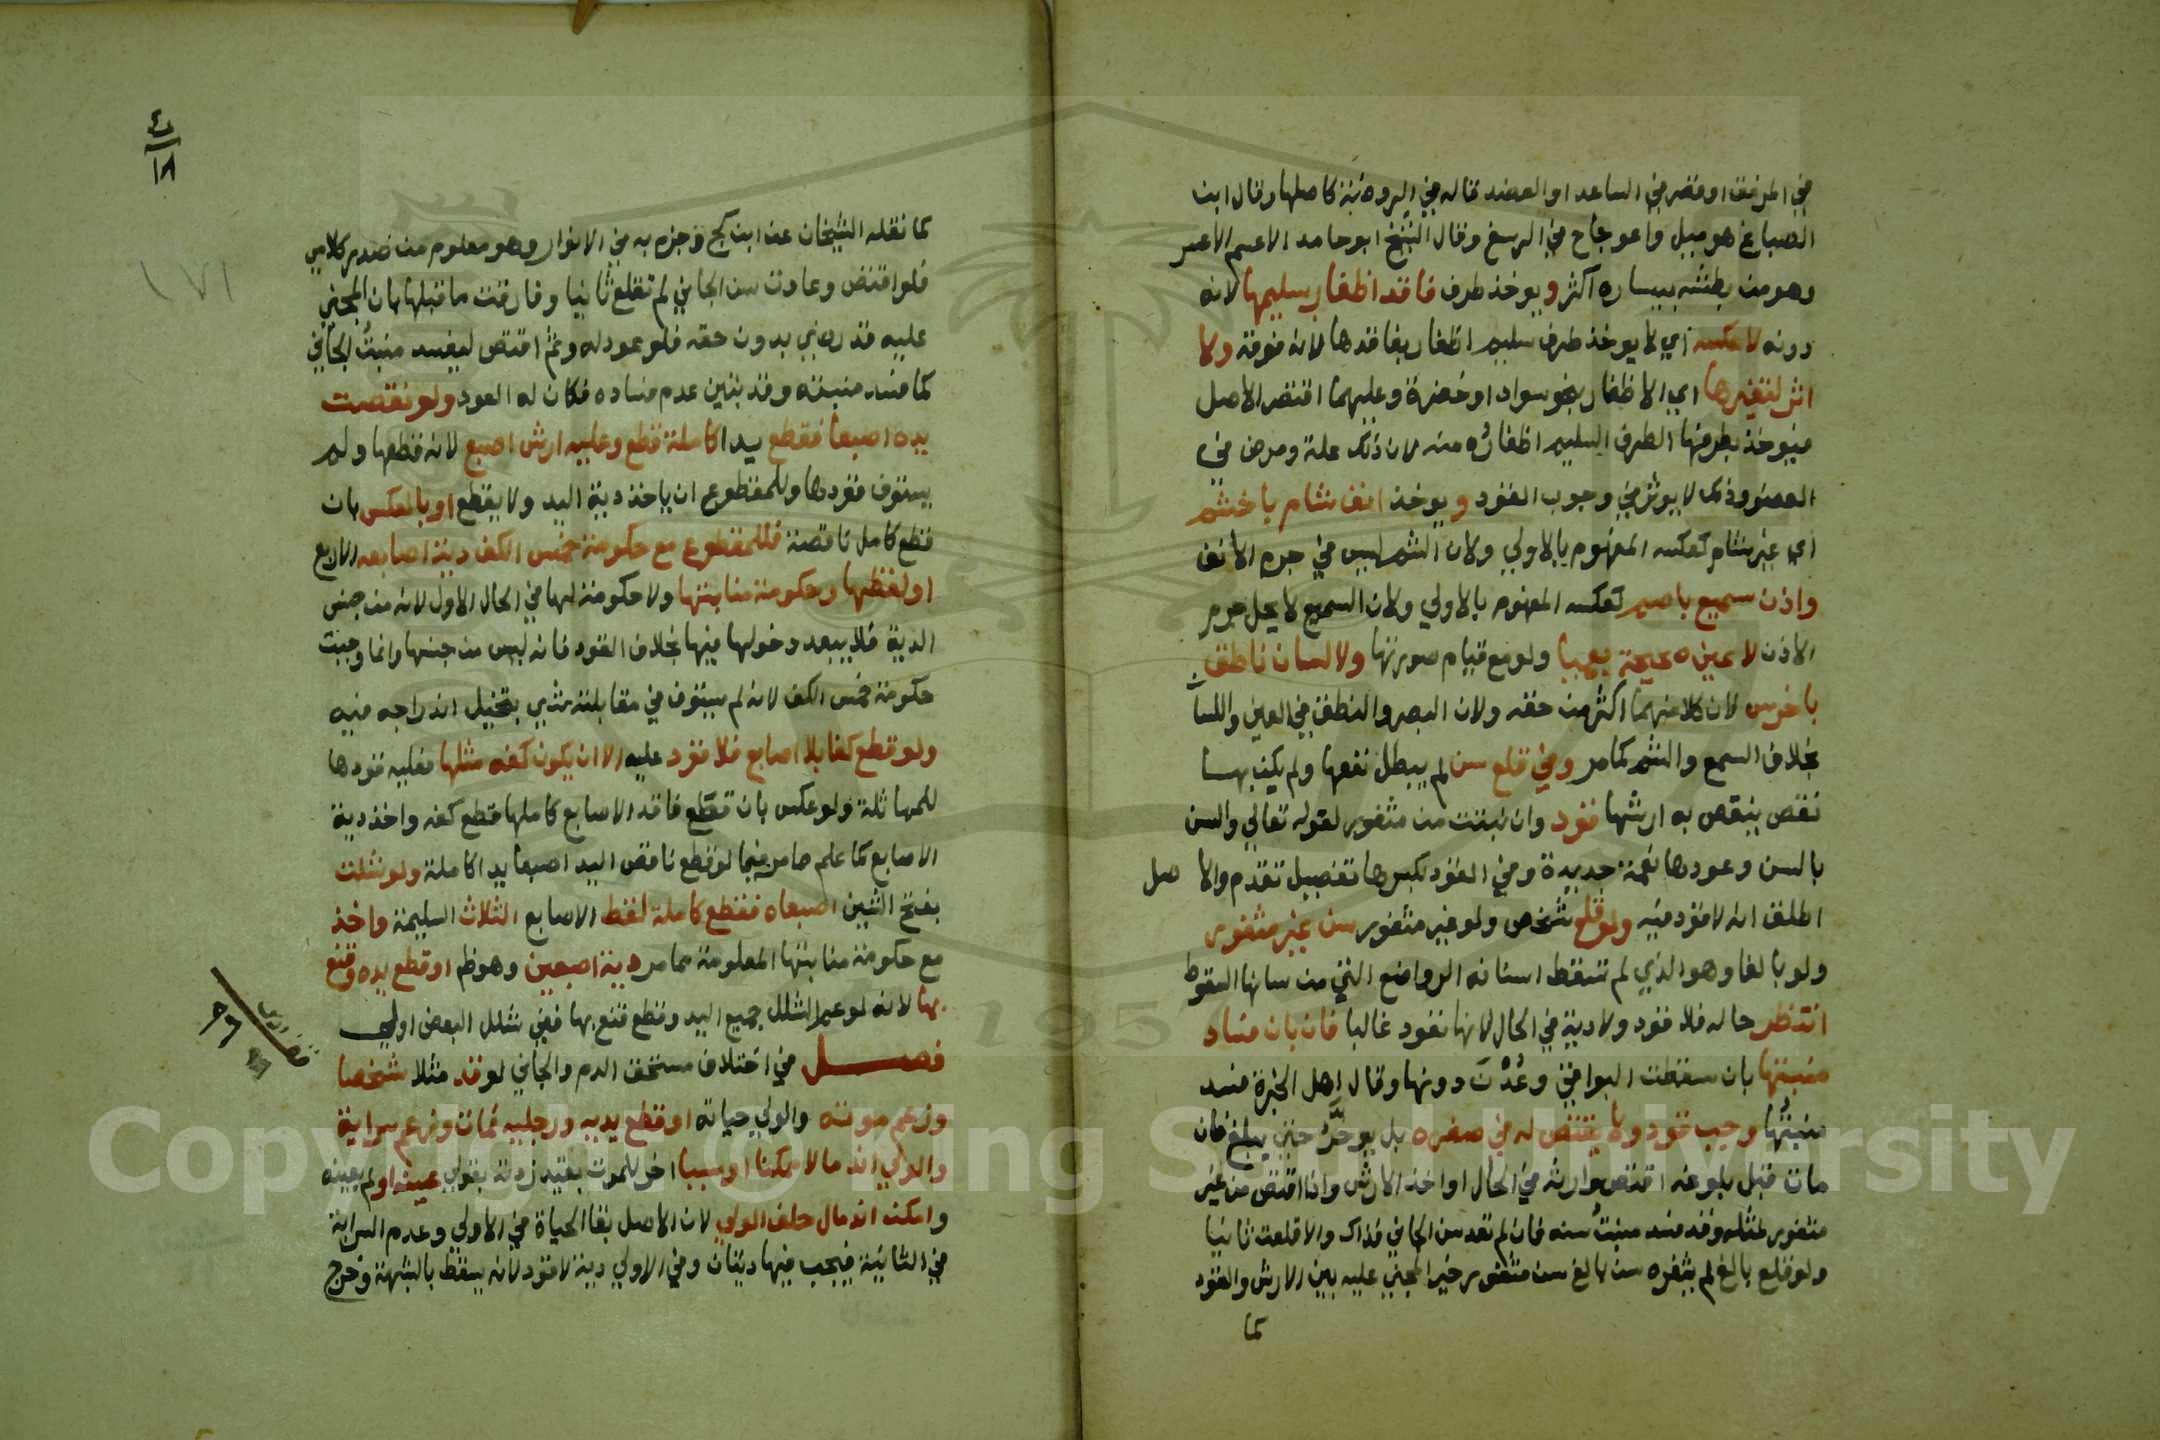 في المرفق او قصر في الساعد او العضد قاله في الروضة كاصلها وقال ابن
الصباغ هو ميل واعوجاج في الرسغ وقال الشيخ ابو حامد الاعسم الاعسر
وهو من بطشه بيساره اكثر ويوخذ طرف فاقد اظفار بسليمها لانه
دونه لا عكسه اي لا يوخذ طرف سليم اظفار بفاقدها لانه فوقه ولا
اثر لتغيرها اي الاظفار بنحو سواد او خضرة وعليهما اقتصر الاصل
فيوخذ بطرفها الطرف السليم اظفاره منه لان ذلك علة ومرض في
العضو وذلك لا يوثر في وجوب القود ويوخذ انف شام باخشم
اي غير شام كعكسه المفهوم بالاولي ولان الشم ليس في جرم الانف
واذن سميع باصم كعكسه المفهوم بالاولي ولان السمع لا يحل جرم
الاذن لا عين صحيحة بعميا ولو مع قيام صورتها ولا لسان ناطق
باخرس لان كلا منهما اكثر من حقه ولان البصر والنطق في العين واللسان
بخلاف السمع والشم كما مر وفي قلع سن لم يبطل نفعها ولم يكن بها
نقص ينقص به ارشها قود وان نبتت من مثغور لقوله تعالي والسن
بالسن وعودها نعمة جديدة وفي القود بكسرها تفصيل تقدم والاصل
اطلق انه لا قود فيه ولو قلع شخص ولو غير مثغور سن غير مثغور
ولو بالغا وهو الذي لم تسقط اسنانه الرواضع التي من شانها السقوط
انتظر حاله فلا قود ولا دية في الحال لانها تعود غالبا فان بان فساد
منبتها بان سقطت البواقي وعدن دونها وقال اهل الخبرة فسد
منبتها وجب قود ولا يقتص له في صغره بل يوخر حتي يبلغ فان
مات قبل بلوغه اقتص وارثه في الحال او اخذ الارش واذا اقتص من غير
مثغور لمثله وقد فسد منبت سنه فان لم تعد سن الجاني فذاك والا قلعت ثانيا
ولو قلع بالغ لم يثغره سن بالغ سن مثغور خير المجني عليه بين الارش والقود
كما
٤
١٨
١٧١
كما نقله الشيخان عن ابن كج وجزم به في الانوار وهو معلوم من صدر كلامي
فلو اقتص وعادت سن الجاني لم تقلع ثانيا وفارقت ما قبلها بان المجني
عليه قد رضي بدون حقه فلو عود له وثم اقتص ليفسد منبت الجاني
كما فسد منبته وقد تبين عدم فساده فكان له العود ولو نقصت
يده اصبعا فقطع يدا كاملة قطع وعليه ارش اصبع لانه قطعها ولم
يستوف قودها وللمقطوع ان ياخذ دية اليد ولا يقطع او بالعكس بان
قطع كامل ناقصة فللمقطوع مع حكومة خمس الكف دية اصابعه الاربع
او لقطها وحكومة منابتها ولا حكومة لها في الحال الاول لانه من جنس
الدية فلا يبعد دخولها فيها بخلاف القود فانه ليس من جنسها وانما وجبت
حكومة خمس الكف لانه لم يستوف في مقابلته شي يتخيل اندراجه فيه
ولو قطع كفا بلا اصابع فلا قود عليه الا ان يكون كفه مثلها فعليه قودها
للمماثلة ولو عكس بان قطع فاقد الاصابع كاملها قطع كفه واخذ دية
الاصابع كما علم مما مر فيما لو قطع ناقص اليد اصبعا يدا كاملة ولو شلت
بفتح الشين اصبعاه فقطع كاملة لقط الاصابع الثلاث السليمة واخذ
مع حكومة منابتها المعلومة مما مر دية اصبعين وهو ظم او قطع يده وقنع
بها لانه لو عم الشلل جميع اليد وقطع قنع بها ففي شلل البعض اولي
فصل في اختلاف مستحق الدم والجاني لو قد مثلا شخصا
وزعم موته والولي حياته او قطع يديه ورجليه فمات وزعم سراية
والولي اندمالا ممكنا او سببا اخر للموت بقيد زدته بقولي عينه او لم يعينه
وامكن اندمال حلف الولي لان الاصل بقا الحياة في الاولي وعدم السراية
في الثانية فيجب فيها ديتان وفي الاولي دية لا قود لانه يسقط بالشبهة وخرج
Copyright © King Saud University
1957